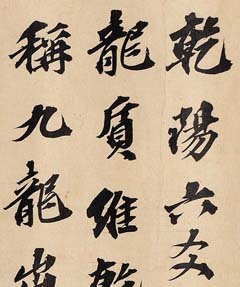 乾陽六爻
龍質維乾
稱九龍出